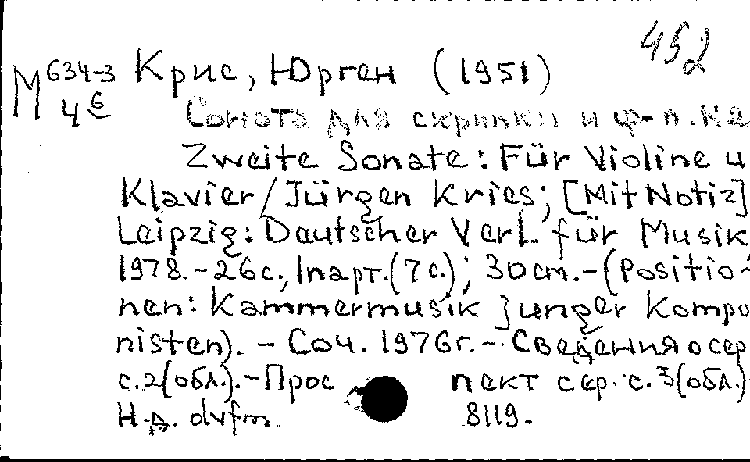 452
М 634-3 Крис, Юрген (1951)
4 6
Соната для скрипки и ф-п. № 2
Zweite Sonate: Für Violine u
Klavier/Jürgen Kries; [Mit Notiz]
Leipzig: Deutscher Verl. für Musik
1978.-26с., 1парт.(7с.); 30cm.-(Positio-
nen: Kammermusik junger Kompo
nisten). - Соч. 1976г.- Сведения о сер
с.2(обл.).-Прос пект сер. с.3(обл.)
Н.д. dvfm 8119.